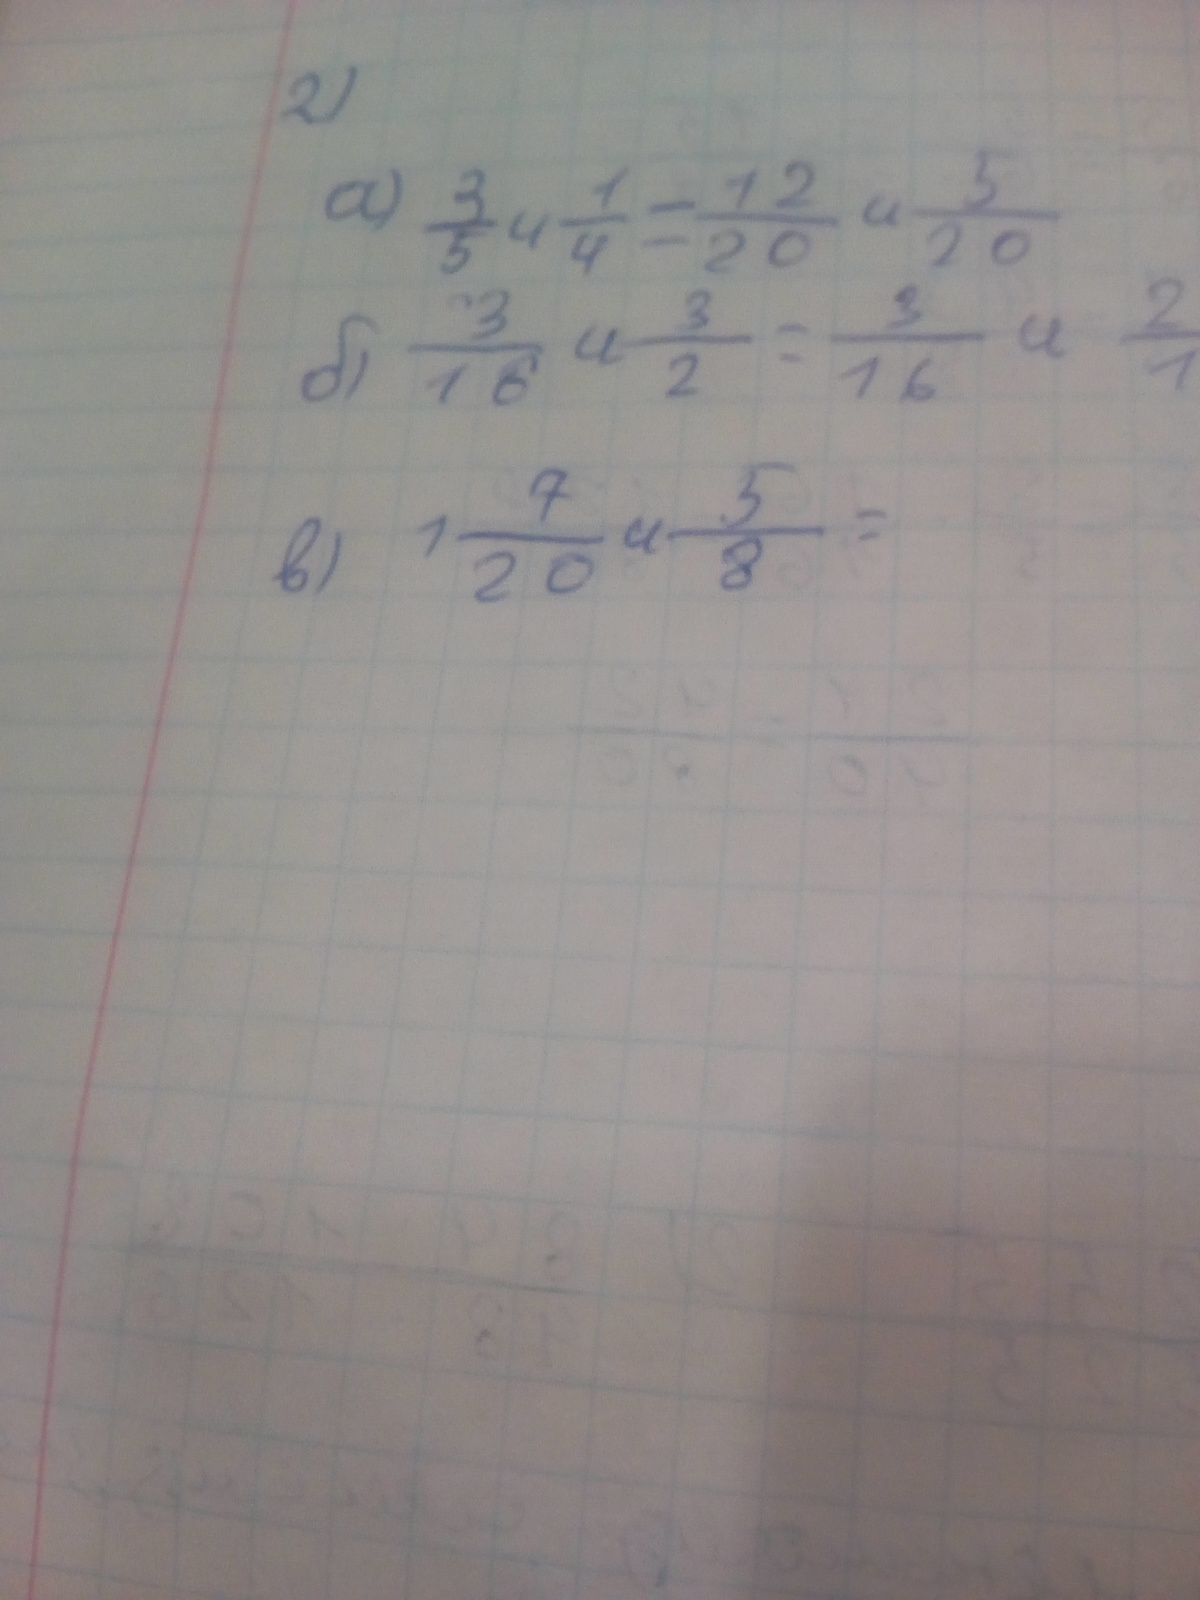 2)
а) 3/5 и 1/4 = 12/20 и 5/20
б) 3/16 и 3/2 = 3/16 и 2/1
в) 1 7/20 и 5/8 =